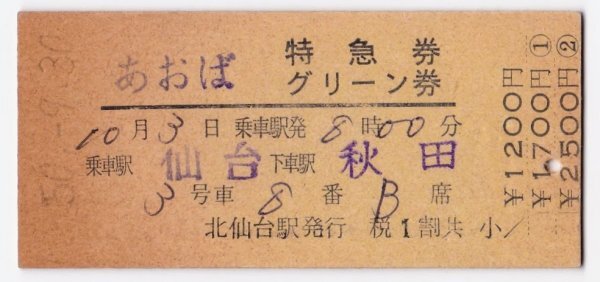 あおば 特急券
グリーン券
10月3日 乗車駅発 8時00分
乗車駅 仙台 下車駅 秋田
3号車 8番 B席
北仙台駅発行 税1割共 小
¥1200円
¥1,700円①
¥2500円②
50.-9.30